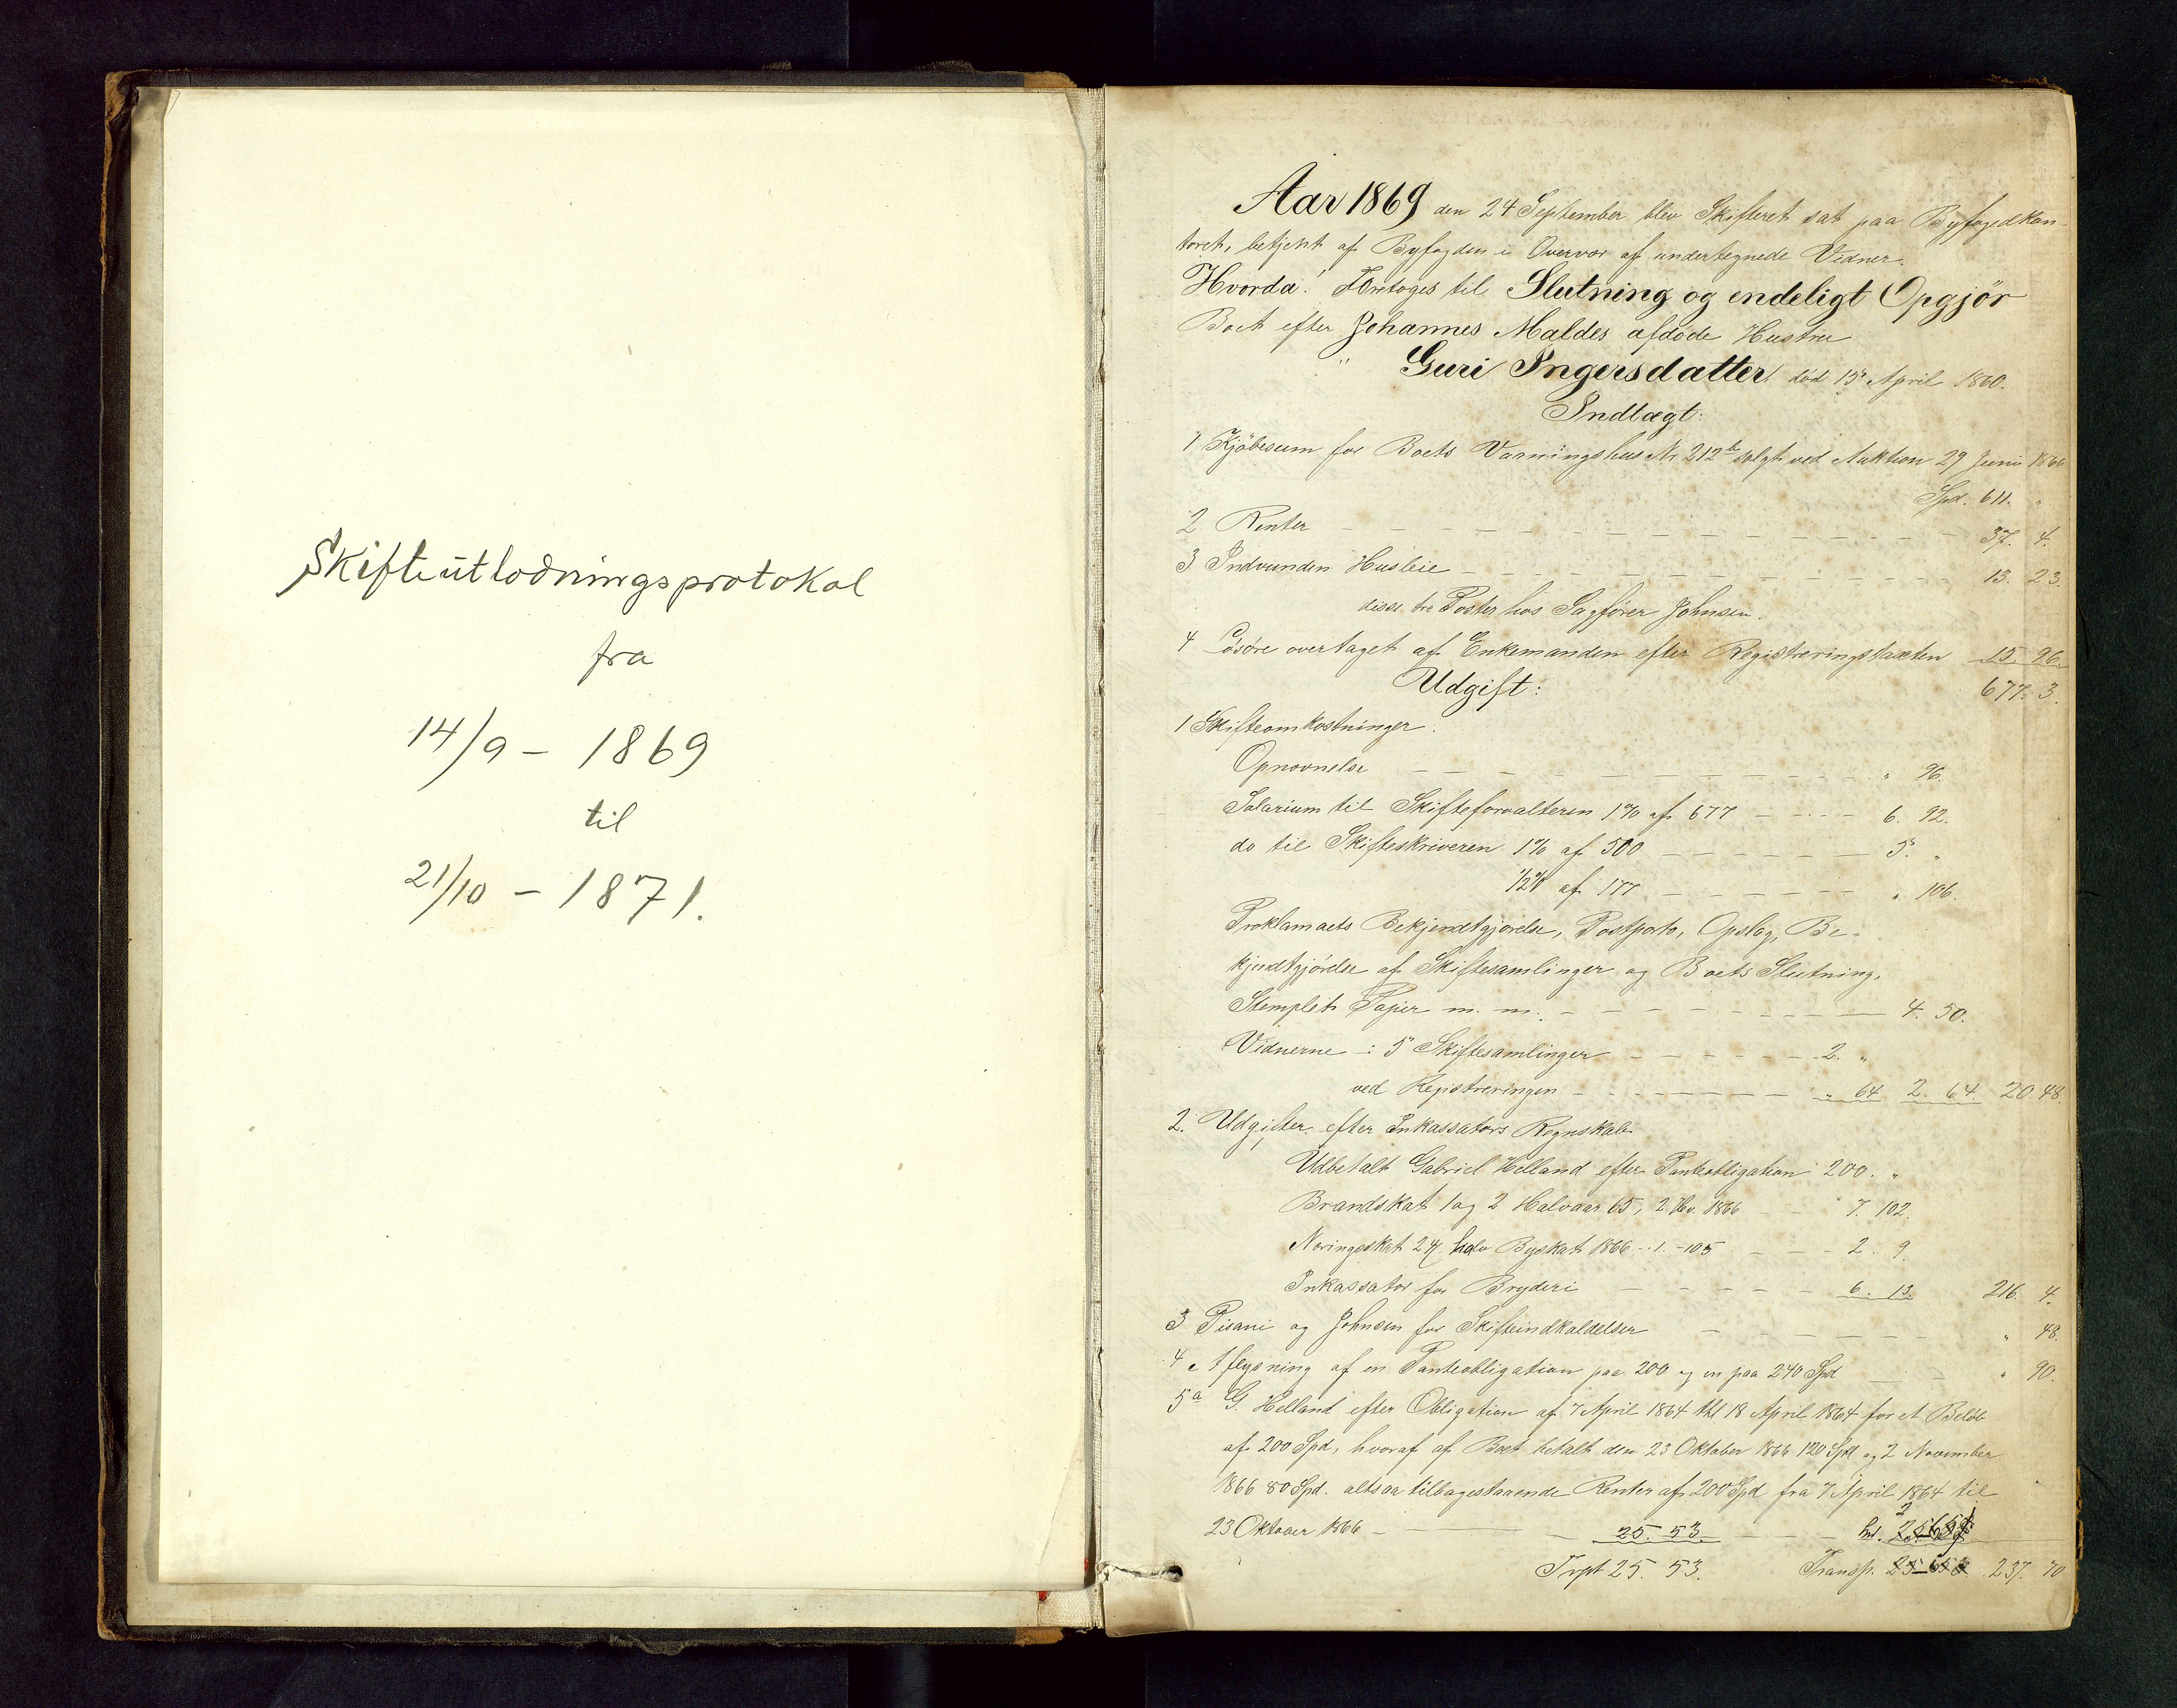 Skifteutlodningsprotokol
fra
14/9 - 1869
til
21/10 - 1871.
Aar 1869 den 24 September blev Skifteret sat paa Byfogedkon-
toret, betjent af Byfogden i Overvær af undertegnede Vidner.
Hvorda! Foretoges til Slutning og endeligt Opgjör
Boet efter Johannes Maldes afdöde Hustru
" Guri Ingersdatter död 15 April 1860.
Indtægt:
1 Kjöbesum for Boets Vaaningshus Nr 212b solgt ved Auktion 29 Juni 1866
Spd. 611. "
2 Renter - - - 37. 4.
3 Indvunden Husleie - - - 13. 23.
disse tre Poster hos Sagförer Johnsen.
4 Lösöre overtaget af Enkemanden efter Registreringstaxten 15. 96.
Udgift: 677. 3.
1 Skifteomkostninger:
Opnævnelse - - - " 96.
Salarium til Skifteforvalteren 1% af 677 - - - 6. 92.
do til Skifteskriveren 1% af 500 - - - 5. "
1/2% af 177 - - - " 106.
Proklamaets Bekjendtgjørelse, Postporto, Opslag, Be-
kjendtgjörelse af Skiftesamlinger og Boets Slutning,
Stemplet Papir m. m. - - - 4. 50.
Vidnerne i 5 Skiftesamlinger - - - 2. "
ved Registreringen - - - " 64 2. 64. 20. 48.
2. Udgifter efter Inkassators Regnskab
Udbetalt Gabriel Helland efter Panteobligation 200. "
Brandskat 1 og 2 Halvaar 65, 2 Hv. 1866 - - 7. 102.
Næringsskat 24, halv Byskat 1866 - 1. - 105 - - - 2. 9.
Inkassator for Bryderi - - - 6. 13. 216. 4.
3 Pisani og Johnsen for Skifteindkaldelser - - - " 48.
4 Aflysning af en Panteobligation paa 200 og en paa 240 Spd - - " 90.
5a G. Helland efter Obligation af 7 April 1864 thl 18 April 1864 for et Belöb
af 200 Spd, hvoraf af Boet betalt den 23 Oktober 1866 120 Spd og 2 November
1866 80 Spd. altsaa tilbagestaaende Renter af 200 Spd fra 7 April 1864 til
23 Oktober 1866 - - - 25. 53.
Trpt 25. 53. Transp. 237. 70